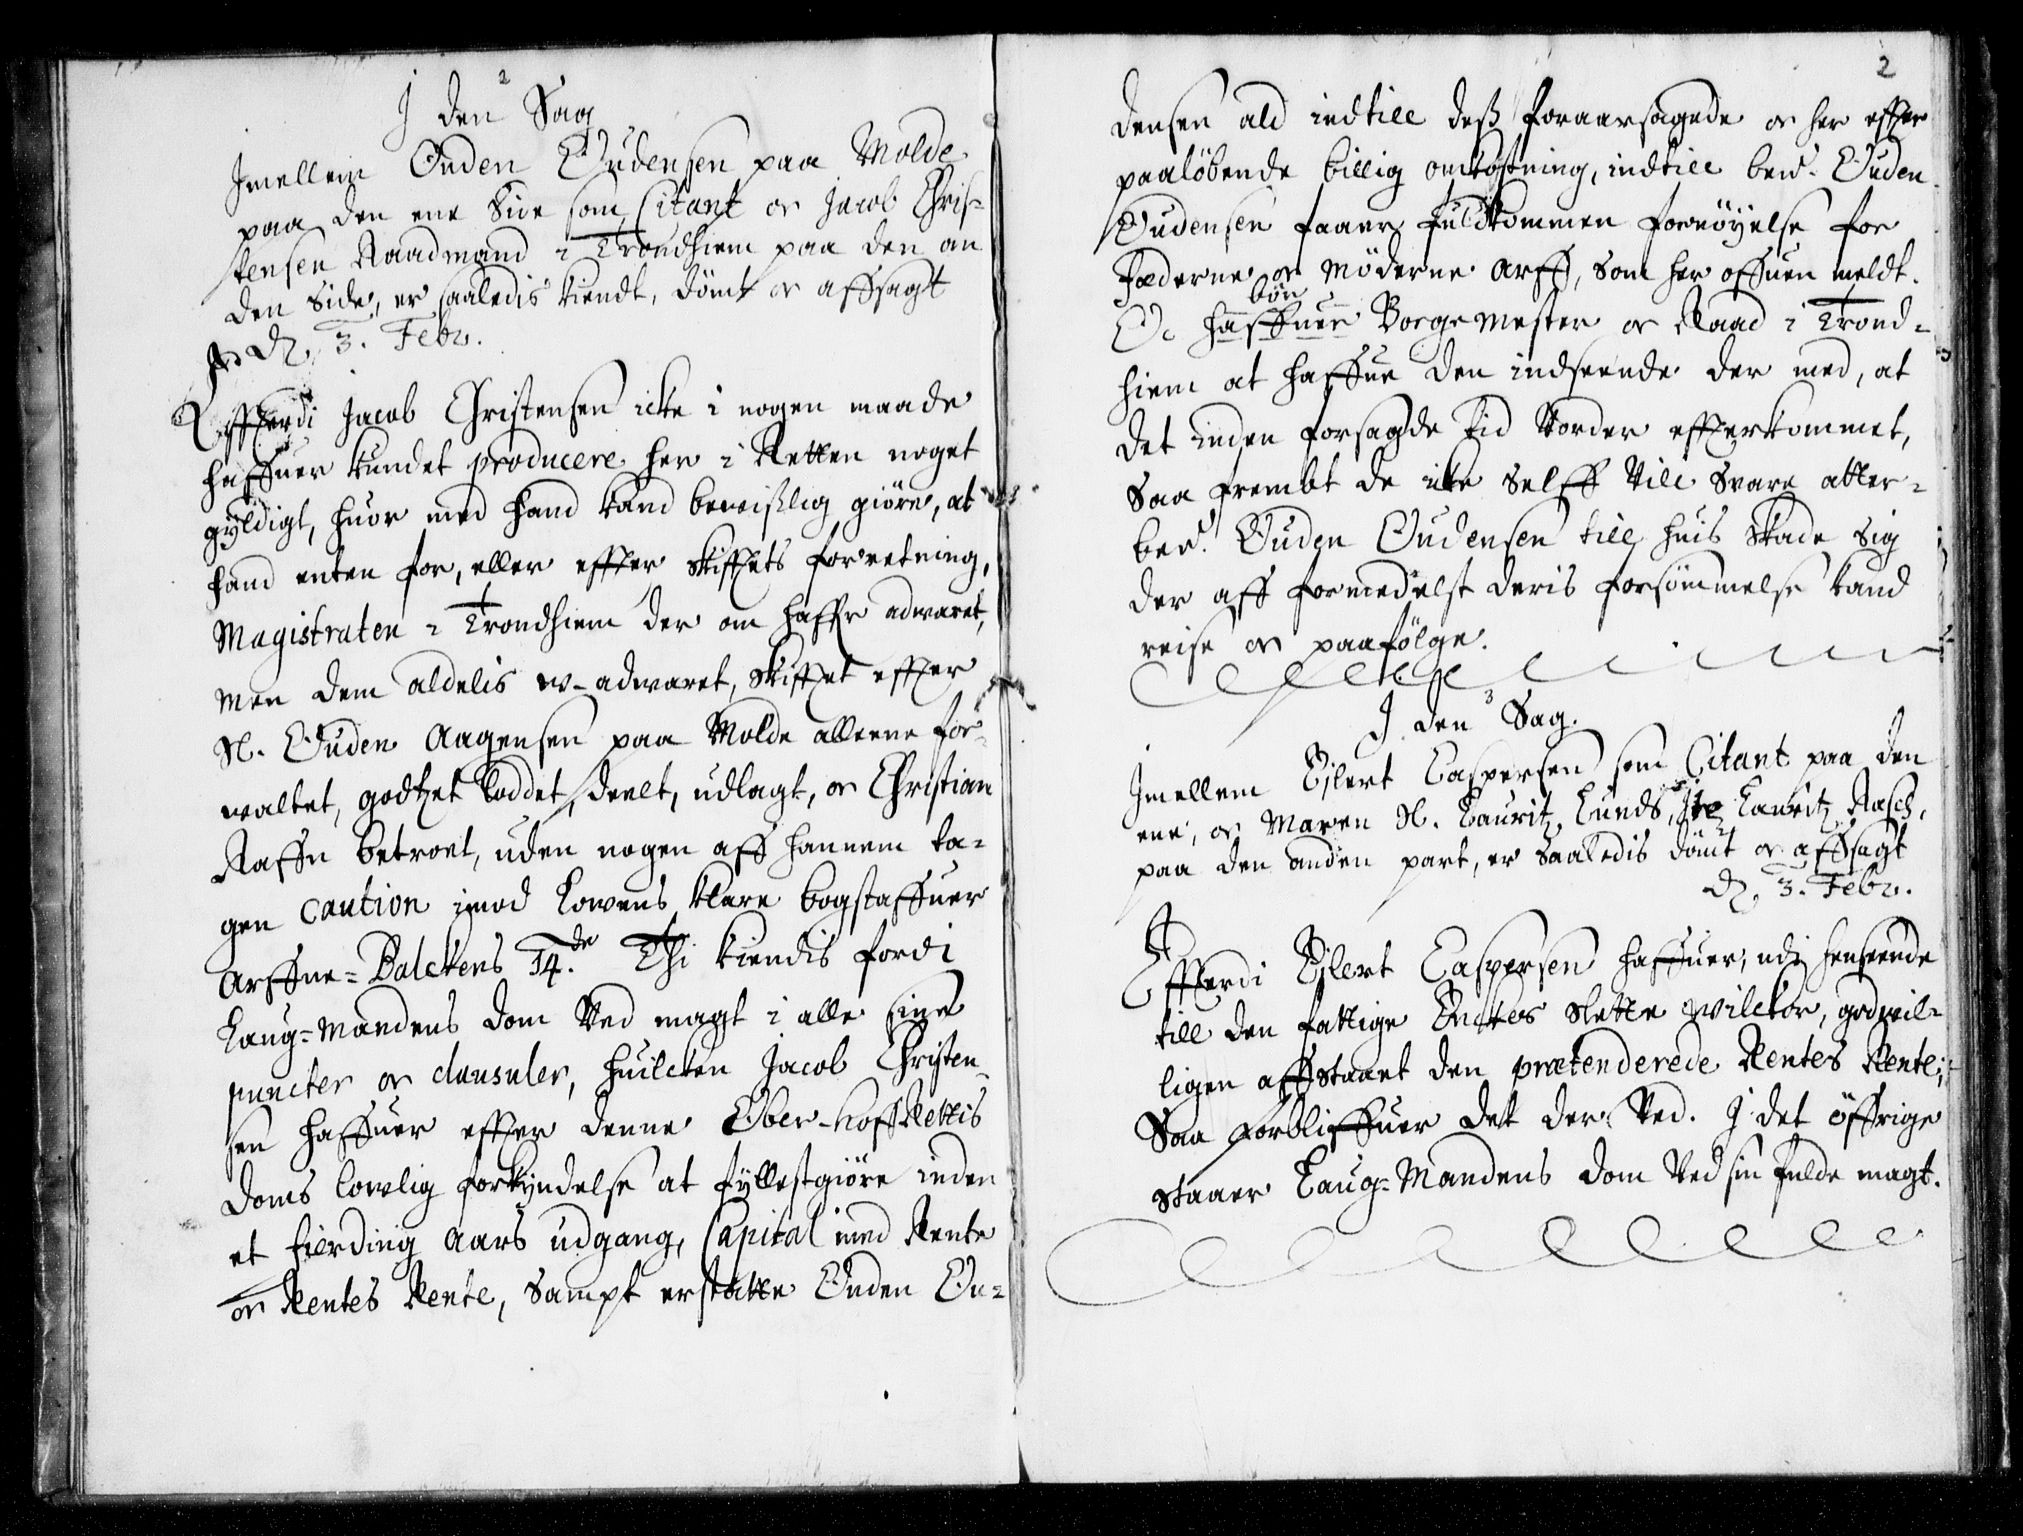 J den 2 Sag
Jmellem Ouden Oudensen paa Molde
paa den ene Side som Citant oc Jacob Chris-
tensen Raadmand i Trondhiem paa den an
den side, er saaledis kiendt, dömt oc affsagt
d. 3. Febr.
Effterdi Jacob Christensen icke i nogen maade
haffuer kundet producere her i Retten noget
gyldigt, huor med hand kand bevißlig giöre, at
hand enten for, eller effter skifftets forretning,
Magistraten i Trondhiem der om haffr adwaret,
men dem aldelis w-adwaret, skifftet effter
Sl. Ouden Aagensen paa Molde alleene for-
waltet, godtzet loddet, deelt, udlagt, oc Christian
Raffn betroet, uden nogen aff hannem ta-
gen Caution imod Lowens klare bogstaffuer
Arffue-Balckens 14.de Thi kiendis fordi
Laug-Mandens dom Ved magt i alle sine
puncter oc clausuler, huilcken Jacob Christen-
sen haffuer effter denne Ober-hoffRettis
doms lowlig forkyndelse at fyllestgiöre inden
et fierding Aars udgang, Capital med Rente
oc Rentes Rente, sampt erstatte Ouden Ou-
2
densen ald indtill deß foraarsagede oc her effter
paalöbende billig omkostning, indtill bem.t Ouden
Oudensen faaer fuldkommen fornöyelse for
Fæderne oc Möderne Arff, som her offuen meldt.
bör
Oc haffuer Borgemester oc Raad i Trond-
hiem at haffue den indseende der med, at
det inden forsagde tid Vorder effterkommet,
Saa frembt de icke self Vill Svare atter-
bem.t Ouden Oudensen till huis skade sig
der aff formedelst deris forsömmelse kand
reise oc paafölge.
J den 3 Sag.
Jmellem Eilert Caspersen som Citant paa den
ene, oc Maren Sl. Lauritz Lunds, Lauritz Rasch,
paa den anden part, er Saaledis dömt oc affsagt
d. 3. Febr.
Effterdi Eilert Caspersen haffuer, udj henseende
till den fattige Enckes slette wilckor, godwil-
ligen affstaaet den prætenderede Rentes Rente;
Saa forbliffuer det der Ved. J det öffrige
staaer Laug-Mandens dom Ved sin fulde magt.